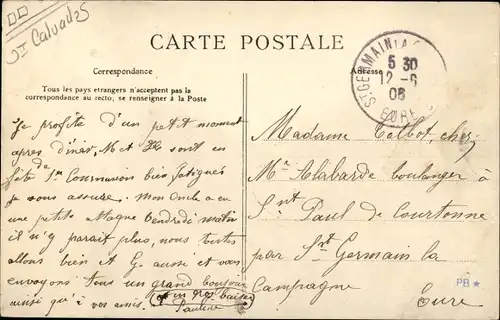 Calvados
CARTE POSTALE
Correspondance
Adresse
Tous les pays étrangers n'acceptent pas la
correspondance au recto, se renseigner à la Poste
ST GERMAIN LA C
5 30
12 - 6
06
EURE
Je profite d'un petit moment
apres diner, M et sont en
fête de 1re Communion bien fatigués
je vous assure. mon oncle a eu
une petite Vendredi matin
il n'y parait plus, nous toutes
allons bien et G aussi et vous
envoyons tous un grand bonjour
ainsi qu'à vos amis. et un gros baiser
Pauline
Madame Talbot, chez
Mr Alabarde boulanger à
St Paul de Courtonne
par St Germain la
Campagne
Eure
PB